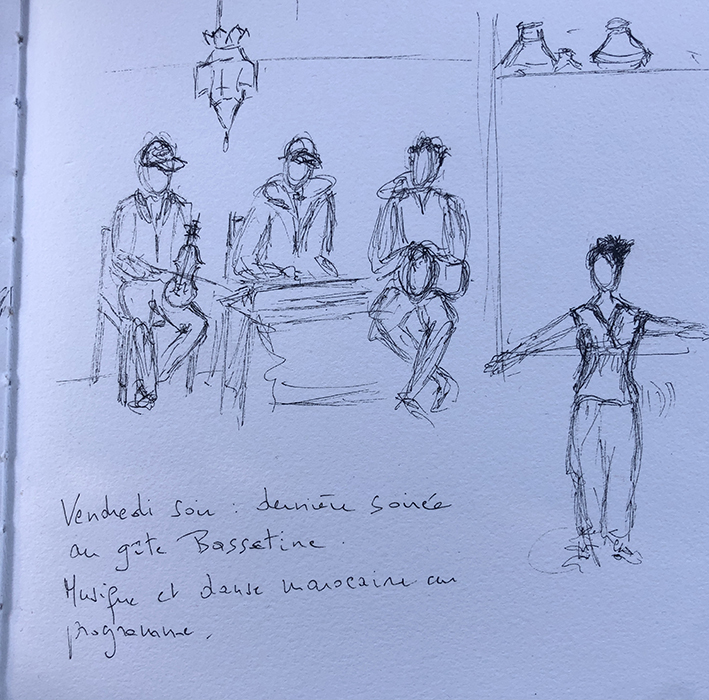 Vendredi soir : dernière soirée
au gîte Bassatine.
Musique et danse marocaine au
programme.